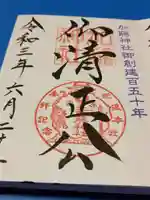 加藤神社御創建百五十年
御清正公
令和三年六月二十